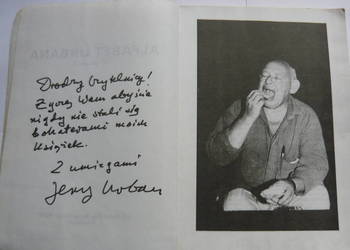 Drodzy czytelnicy!
Życzę Wam abyście
nigdy nie stali się
bohaterami moich
książek.
Z umizgami
Jerzy Urban
ALFABET URBANA